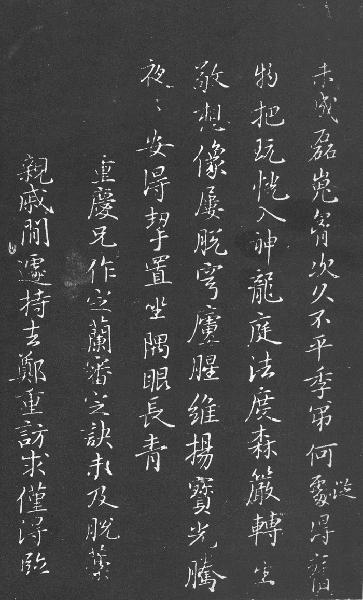 未成磊嵬胷次久不平季弟何從處得舊
物把玩恍入神龍庭法度森嚴轉生
敬想像屢脫穹廬腥維揚寶光騰
夜〻安得挈置坐隅眼長青
重慶兄作定蘭審定訣未及脫藁
親戚間遽持去鄭重訪求僅得臨